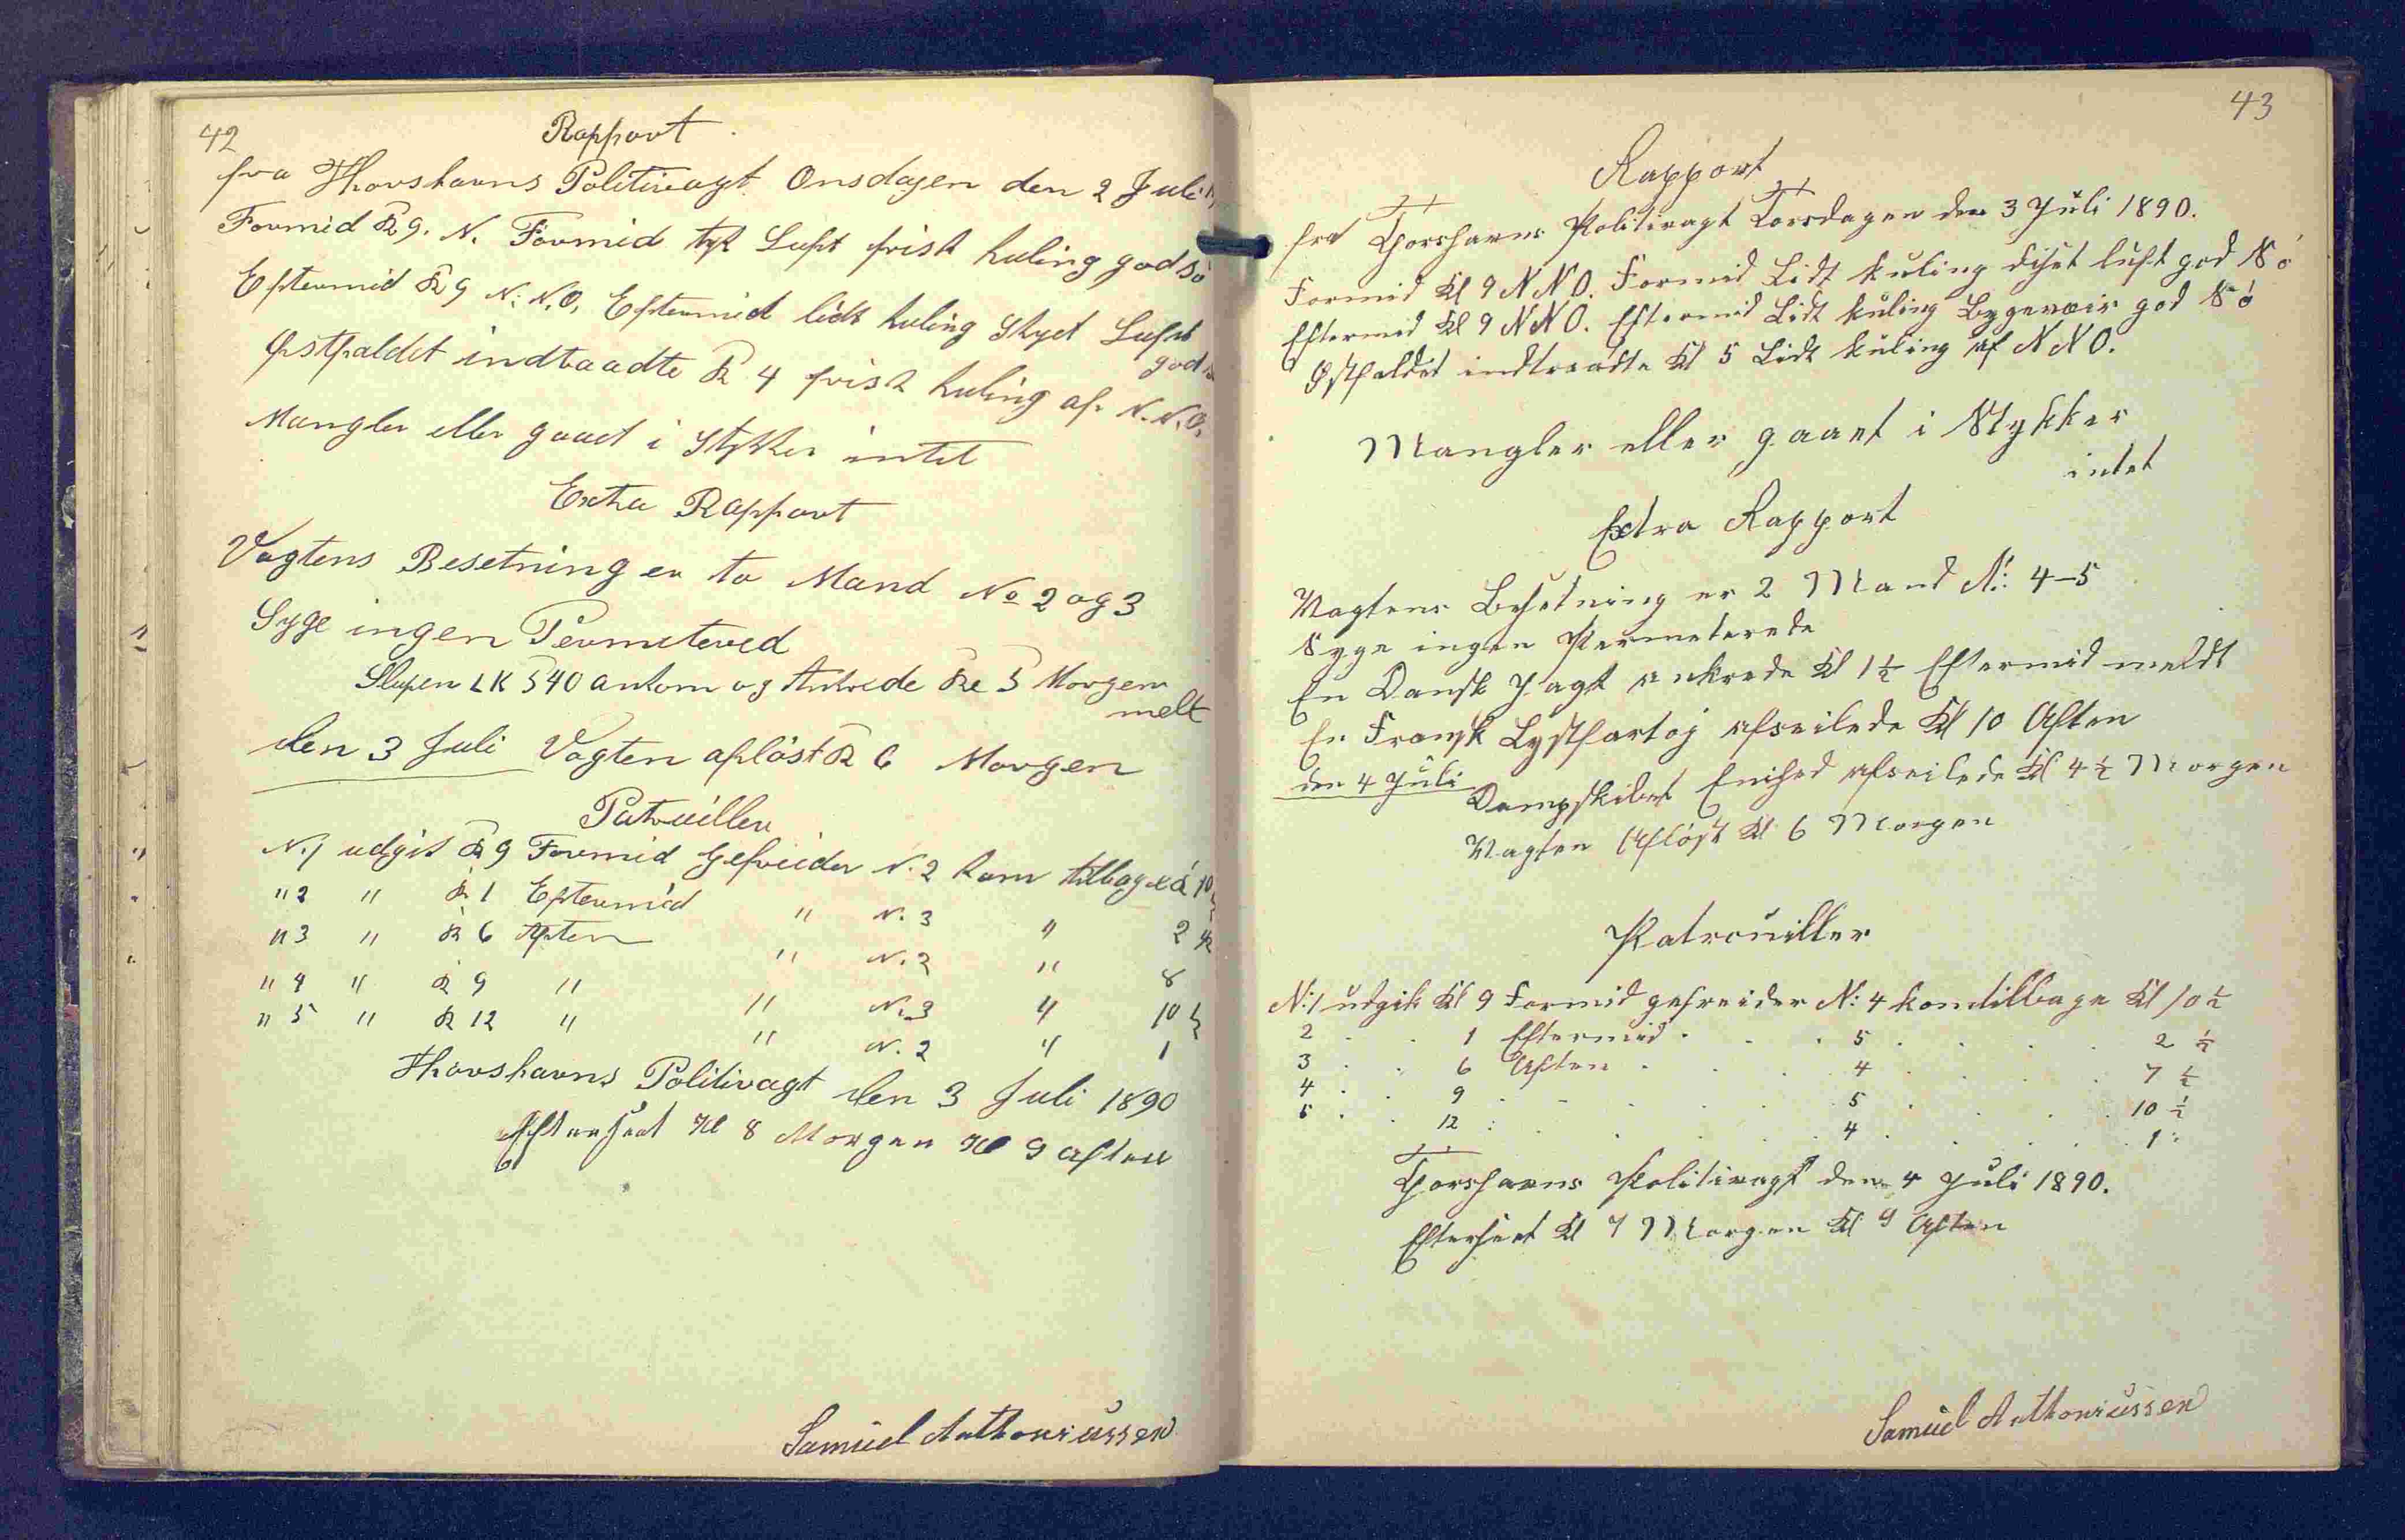 42
Rapport
fra Thorshavns Politivagt Onsdagen den 2 Juli
Formid Kl 9. N. Formid tyk Luft frisk kuling god Sö
Eftermid Kl 9 N.N.O, Eftermid lidt kuling Skyet Luft
god
Østfaldet indtraadte Kl 4 frisk kuling af N.N.O.
Mangler eller gaaet i Stykker intet
Extra Rapport
Vagtens Besetning er to Mand No 2 og 3
Syge ingen Permitered
Slupen LK 540 ankom og Ankrede Kl 5 Morgen
melt
den 3 Juli Vagten aflöst Kl 6 Morgen
Patruiller
N.1 udgik Kl 9 Formid Gefreider N. 2 kom tilbage Kl 10½
" 2 " Kl 1 Eftermid " N. 3 " 2½
" 3 " Kl 6 Aften " N. 2 " 8
" 4 " Kl 9 " " N. 3 " 10½
" 5 " Kl 12 " " N. 2 " 1
Thorshavns Politivagt den 3 Juli 1890
Efterseet Kl 8 Morgen Kl 9 aften
Samuel Anthoniussen
43
Rapport
fra Thorshavns Politivagt Torsdagen den 3 Juli 1890.
Formid Kl 9 N N O. Formid Lidt kuling diset luft god Sö
Eftermid Kl 9 N N O. Eftermid Lidt kuling Bygeveir god Sö
Østfaldet indtraadte Kl 5 Lidt kuling af N N O.
Mangler eller gaaet i Stykker
intet
Extra Rapport
Vagtens Besetning er 2 Mand N: 4-5
Syge ingen Permeterede
En Dansk Jagt ankrede Kl 1½ Eftermid meldt
En Fransk Lystfartøj afseilede Kl 10 Aften
den 4 Juli Dampskibet Enihed afseilede Kl 4½ Morgen
Vagten Afløst Kl 6 Morgen
Patrouiller
N: 1 udgik Kl 9 Formid gefreider N: 4 kom tilbage Kl 10½
2 . . 1 Eftermid . . . 5 . . . . 2½
3 . . 6 Aften . . . 4 . . . . 7½
4 . . 9 . . . . 5 . . . . 10½
5 . . 12 . . . . 4 . . . . 1
Thorshavns Politivagt den 4 Juli 1890.
Efterseet Kl 7 Morgen Kl 9 Aften
Samuel Anthoniussen